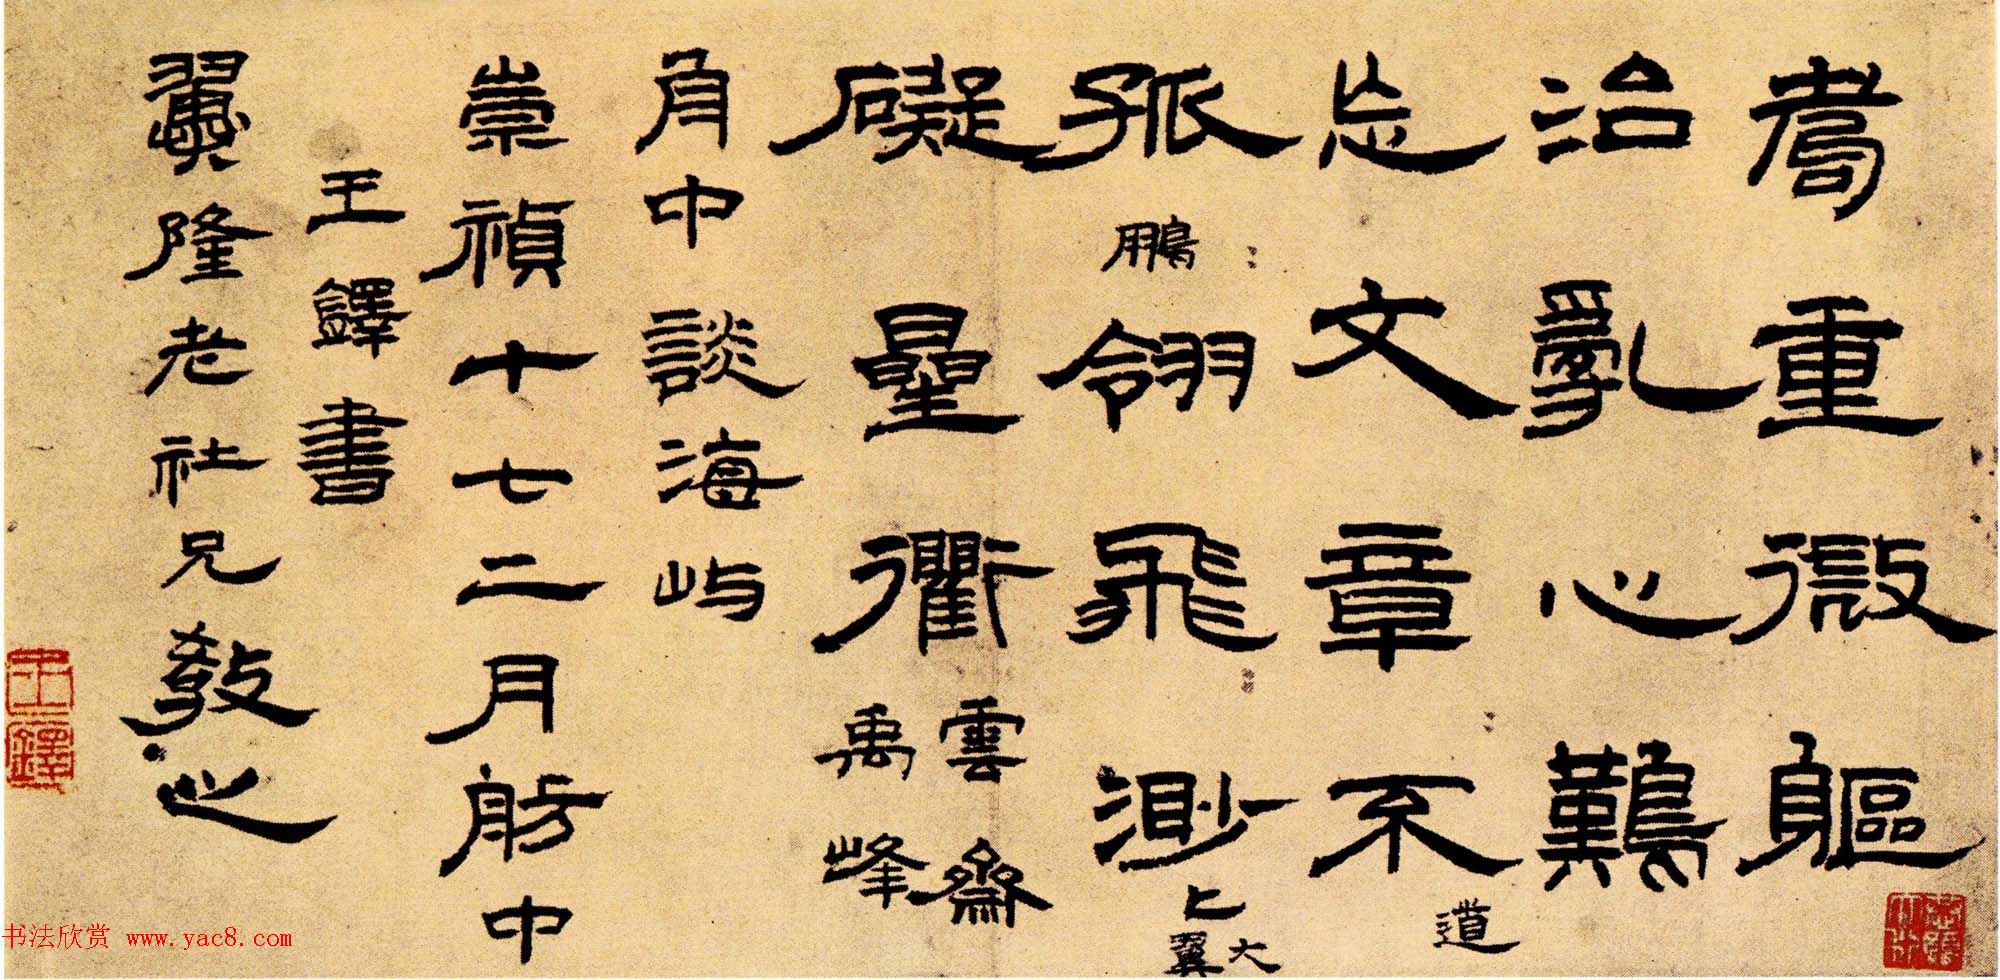 耆重微軀
治亂心難
忘文章不道
孤鵬翎飛渺上大翼
礙星衢雲齋禹峰
舟中談海屿
崇禎十七二月舫中
王鐸書
翼隆老社兄教之
王鐸
书法欣赏 www.yac8.com